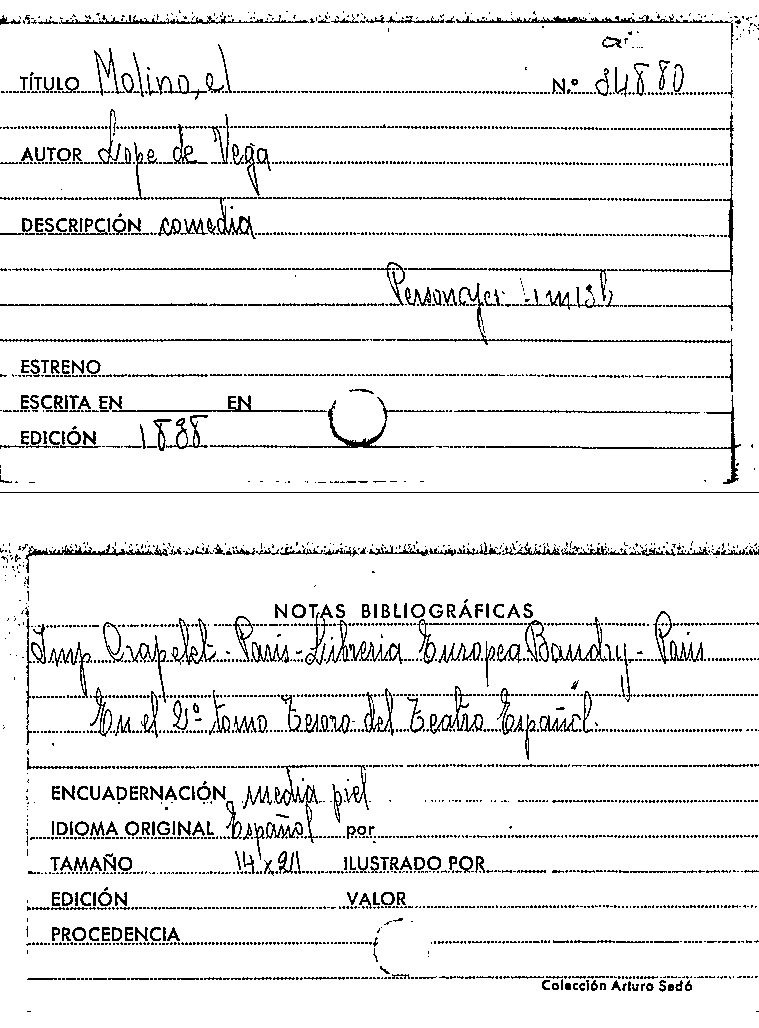 TÍTULO Molino, el N.º 34880
AUTOR Lope de Vega
DESCRIPCIÓN comedia
Personajes
ESTRENO
ESCRITA EN EN
EDICIÓN 1838
NOTAS BIBLIOGRÁFICAS
Imp Crapelet - París - Libreria Europea Baudry - París
En el 2º tomo Tesoro del Teatro Español.
ENCUADERNACIÓN media piel
IDIOMA ORIGINAL Español por
TAMAÑO 14 x 21 ILUSTRADO POR
EDICIÓN VALOR
PROCEDENCIA
Colección Arturo Sedó